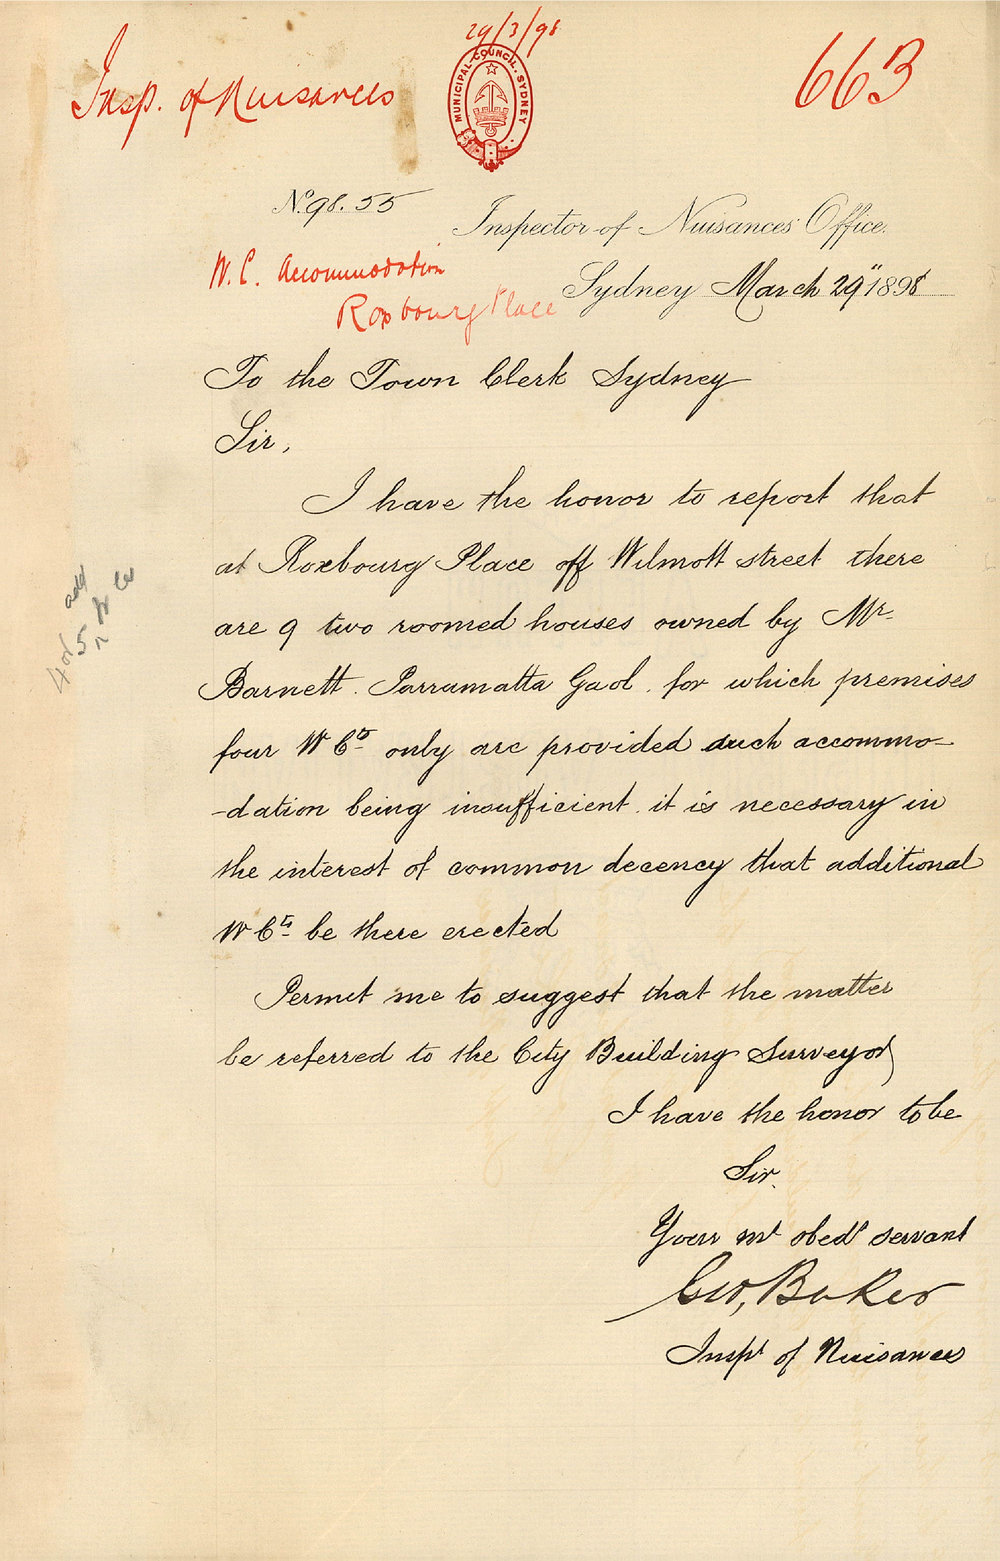 29/3/98
Insp. of Nuisances
663
MUNICIPAL·COUNCIL. SYDNEY
No. 98. 55
Inspector of Nuisances Office.
W. C. Accommodation
Roxbourg Place
Sydney March 29" 1898
To the Town Clerk Sydney
Sir,
I have the honor to report that
at Roxbourg Place off Wilmott street there
are 9 two roomed houses owned by Mr.
Barnett. Parramatta Gaol, for which premises
four W Cs only are provided such accommo-
-dation being insufficient. it is necessary in
the interest of common decency that additional
W Cs be there erected
Permit me to suggest that the matter
be referred to the City Building Surveyor
I have the honor to be
Sir.
Your mt obedt servant
Geo, Baker
Inspt of Nuisances
4 or 5 add
W Cs